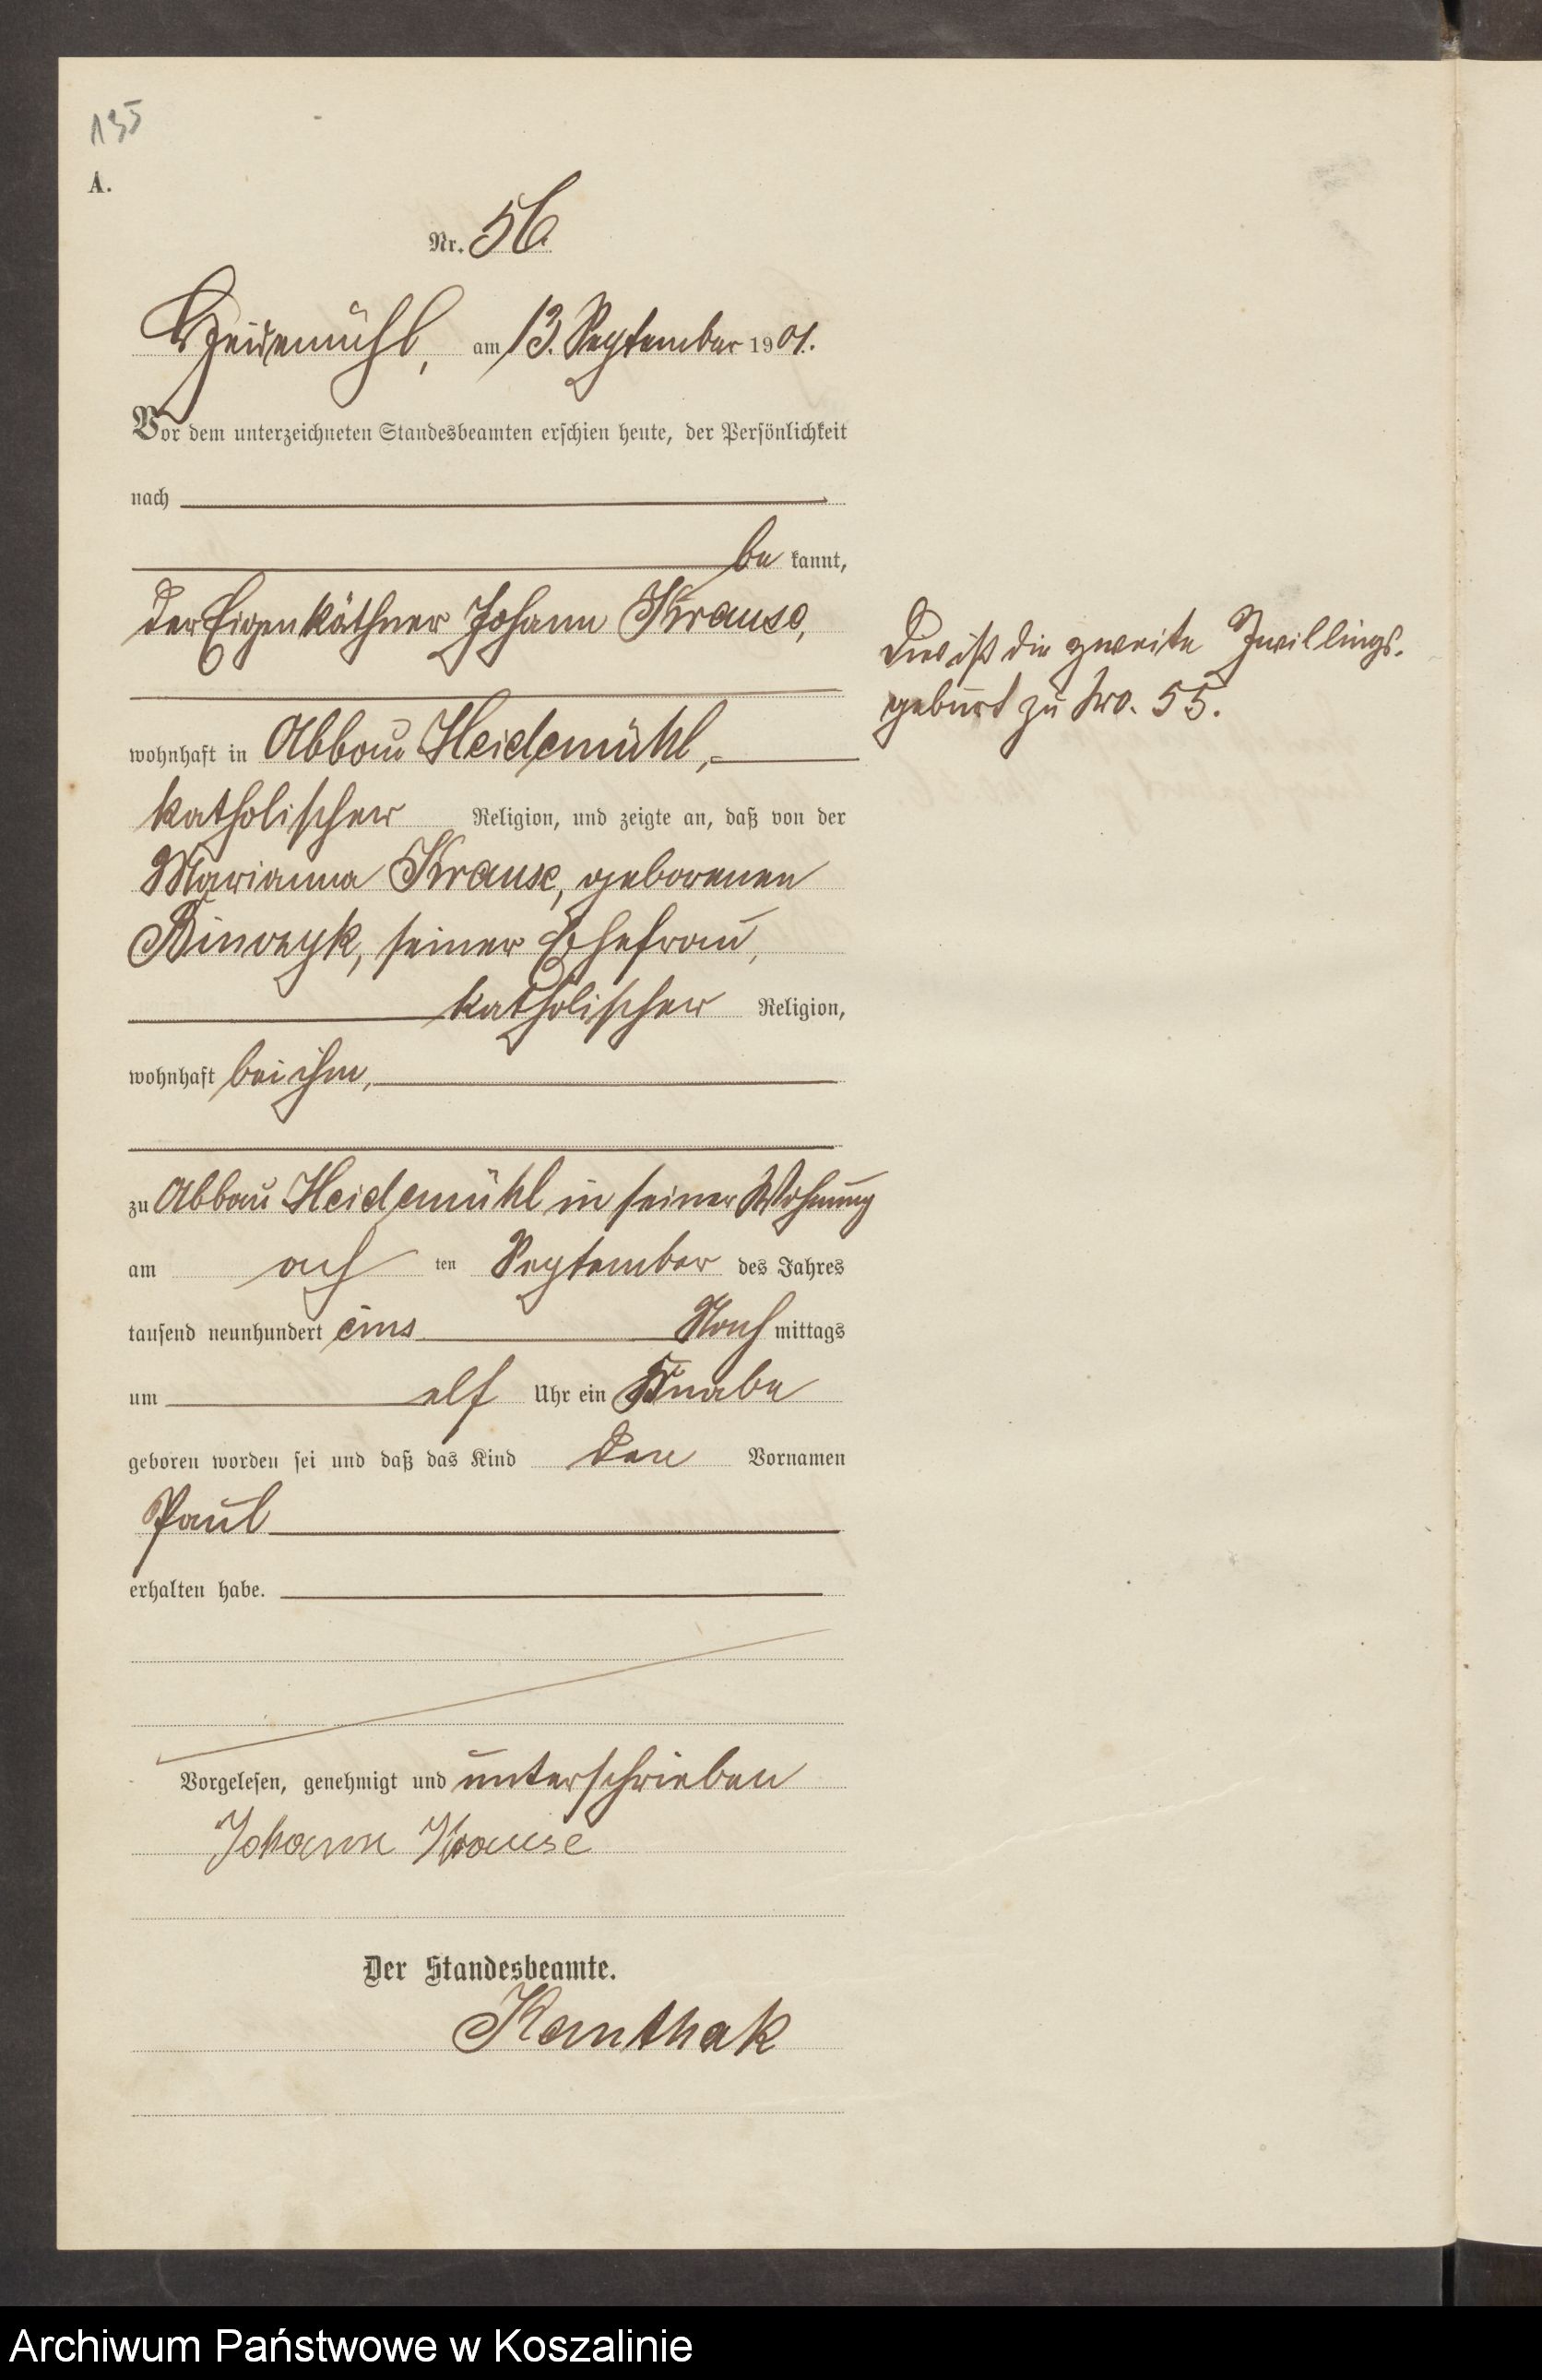 135
A.
Nr. 56.
Heidemühl, am 13. September 1901.
Vor dem unterzeichneten Standesbeamten erschien heute, der Persönlichkeit
nach
be kannt,
der Eigenkäthner Johann Krause,
Dies ist die zweite Zwillings-
geburt zu Nro. 55.
wohnhaft in Abbau Heidemühl,
katholischer Religion, und zeigte an, daß von der
Marianna Krause, geborenen
Binczyk, seiner Ehefrau,
katholischer Religion,
wohnhaft bei ihm,
zu Abbau Heidemühl in seiner Wohnung
am ach ten September des Jahres
tausend neunhundert eins Nach mittags
um elf Uhr ein Knabe
geboren worden sei und daß das Kind den Vornamen
Paul
erhalten habe.
Vorgelesen, genehmigt und unterschrieben
Johann Krause
Der Standesbeamte.
Kanthak
Archiwum Państwowe w Koszalinie